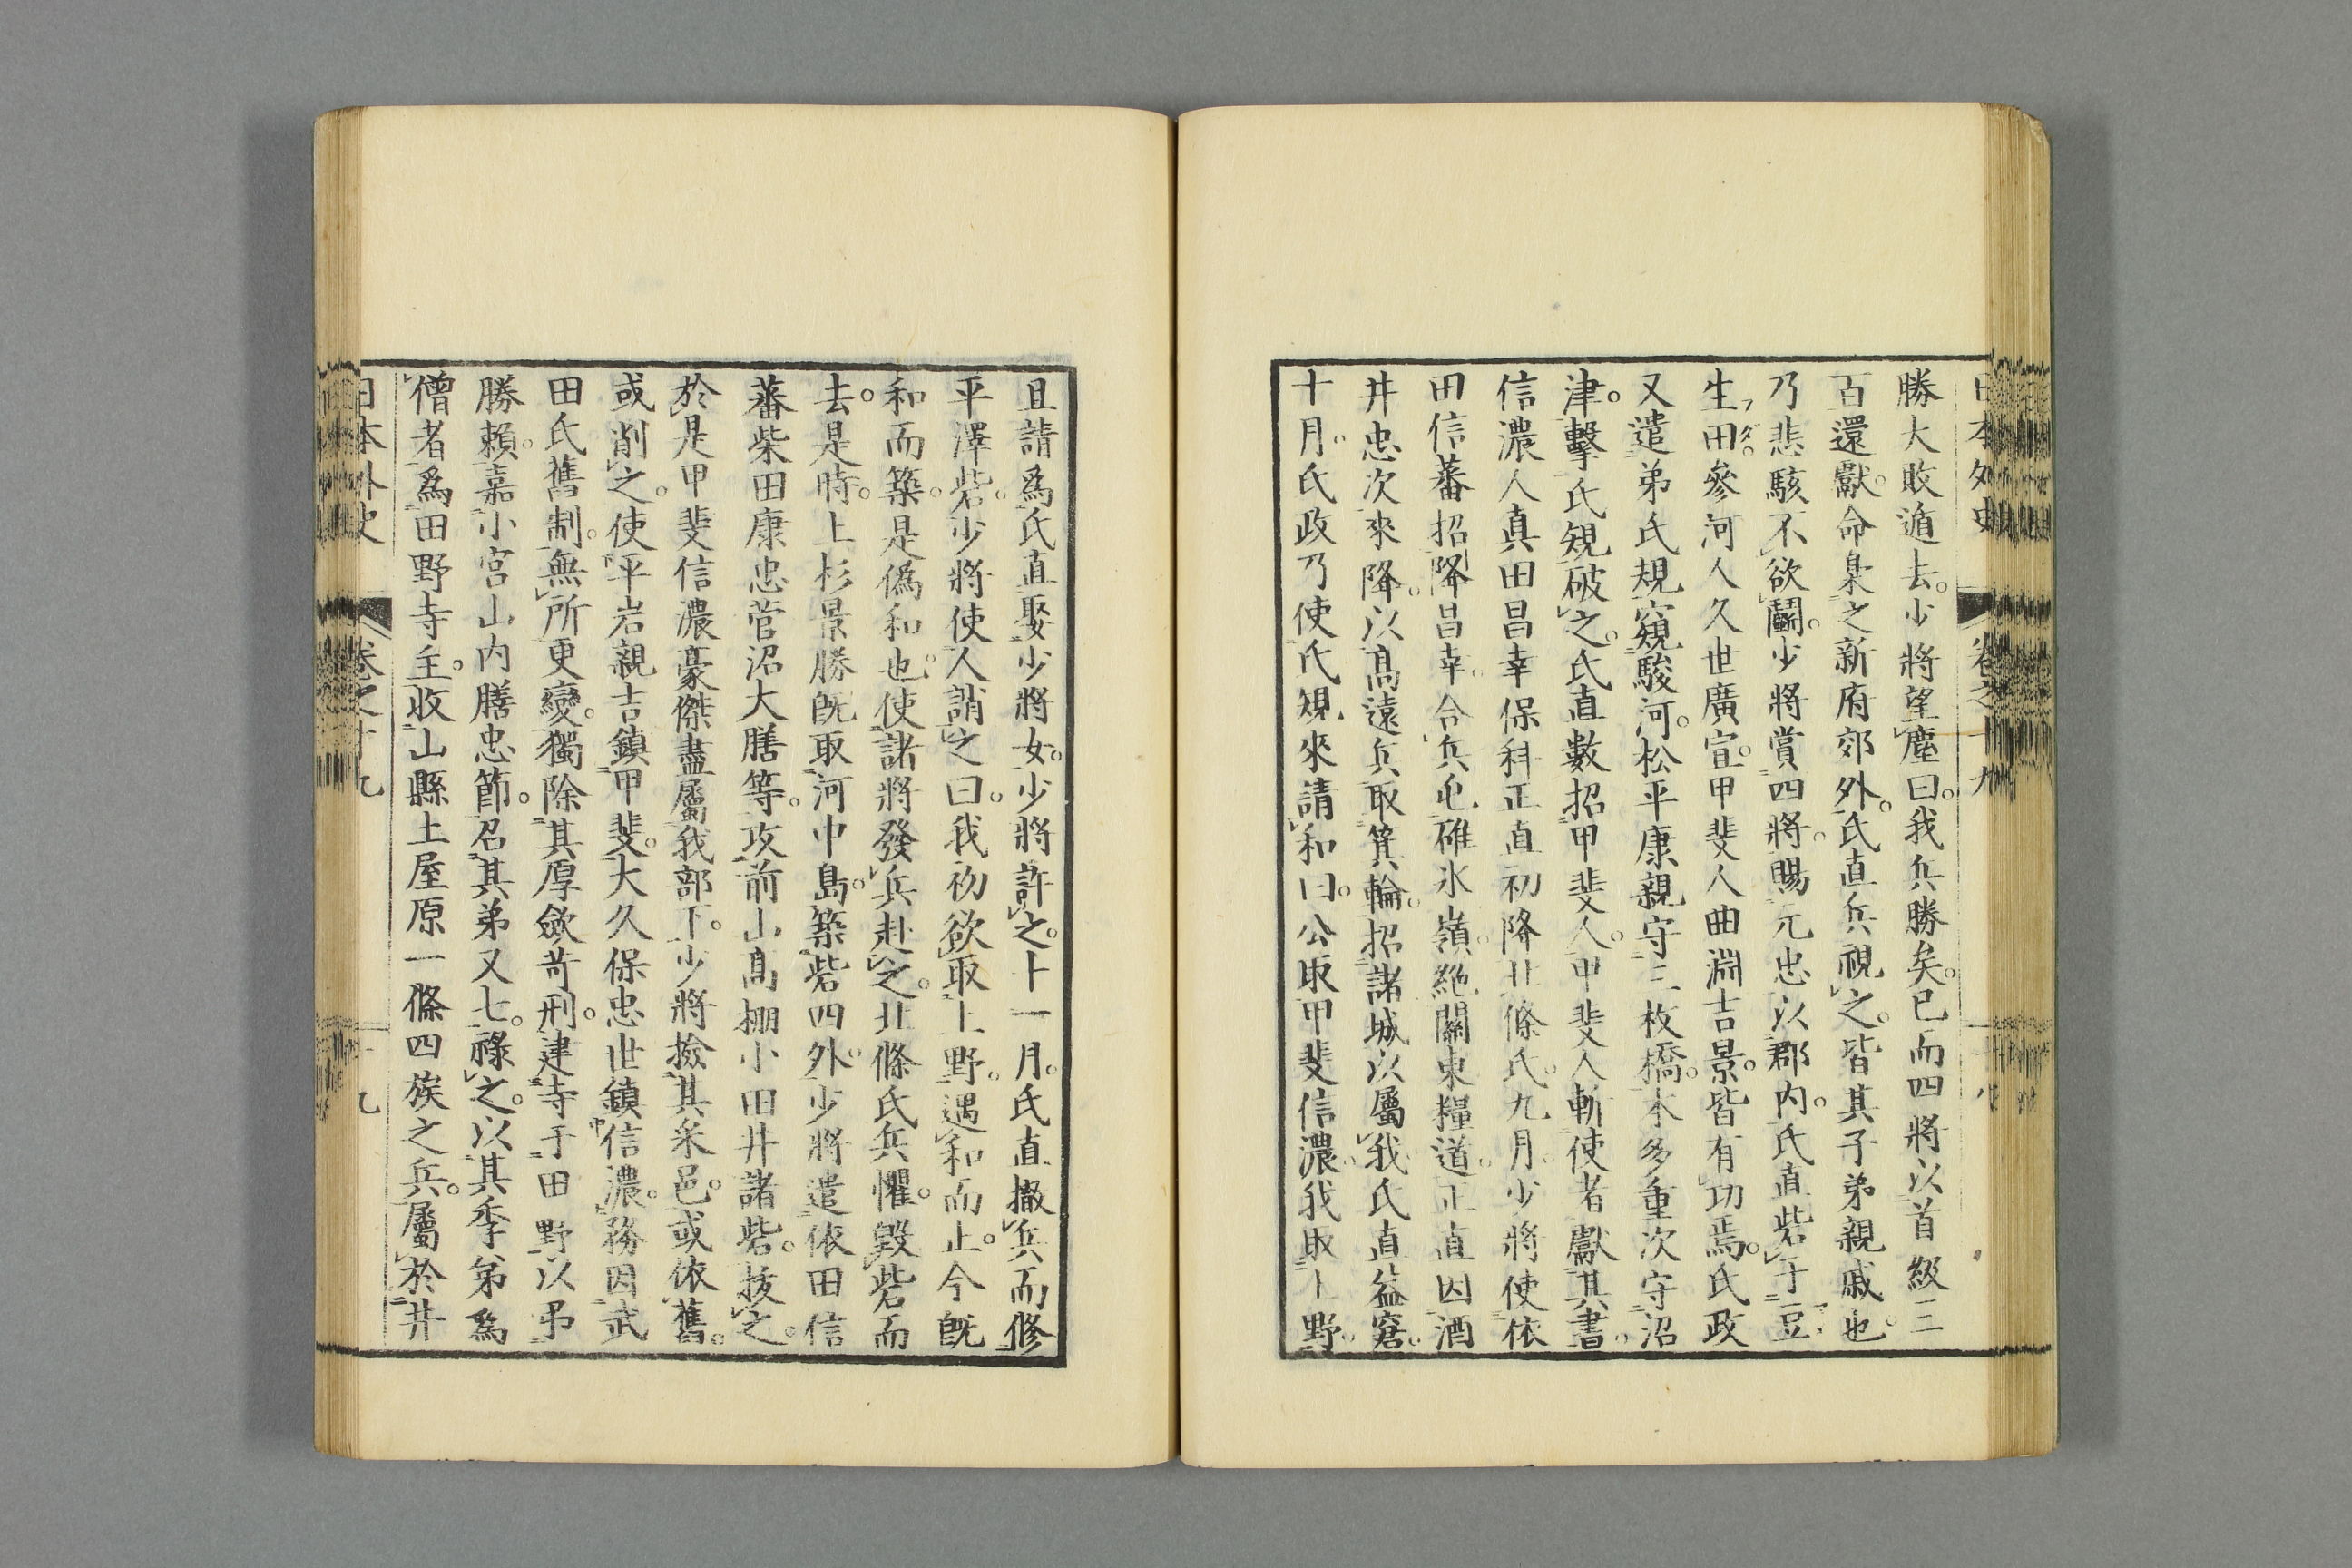 日本外史 卷之十九 十八
勝大敗遁去。少將望塵曰。我兵勝矣。已而四將以首級三
百還獻。命梟之新府郊外。氏直兵視之。皆其子弟親戚也。
乃悲駭不欲鬬。少將賞四將。賜元忠以郡內。氏直砦于豆
生田。參河人久世廣宣。甲斐人曲淵吉景。皆有功焉。氏政
又遣弟氏規窺駿河。松平康親守三枚橋。本多重次守沼
津。擊氏規破之。氏直數招甲斐人。甲斐人斬使者獻其書。
信濃人真田昌幸保科正直初降北條氏。九月。少將使依
田信蕃招降昌幸。合兵屯碓氷嶺。絕關東糧道。正直因酒
井忠次來降。以高遠兵取箕輪。招諸城以屬我。氏直益窘。
十月。氏政乃使氏規來請和曰。公取甲斐信濃。我取上野。
且請爲氏直娶少將女。少將許之。十一月。氏直撤兵而修
平澤砦。少將使人誚之曰。我初欲取上野。遇和而止。今既
和而築。是僞和也。使諸將發兵赴之。北條氏兵懼。毀砦而
去。是時。上杉景勝既取河中島。築砦四外。少將遣依田信
蕃柴田康忠菅沼大膳等。攻前山高棚小田井諸砦。拔之。
於是甲斐信濃豪傑盡屬我部下。少將撿其采邑。或依舊。
或削之。使平岩親吉鎮甲斐。大久保忠世鎮信濃。務因武
田氏舊制。無所更變。獨除其厚斂苛刑。建寺于田野以弔
勝賴。嘉小宮山內膳忠節。召其弟又七。祿之。以其季弟爲
僧者爲田野寺主。收山縣土屋原一條四族之兵。屬於井
日本外史 卷之十九 十九